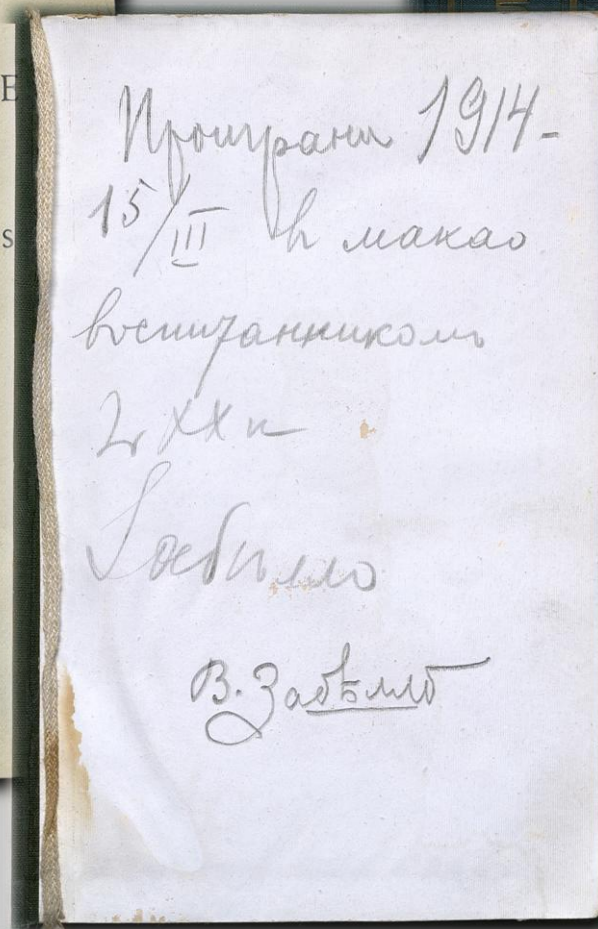 Проиграни 1914-
15/III в макао
воспитанникомъ
Забѣлло
В. Забѣлло
E
S